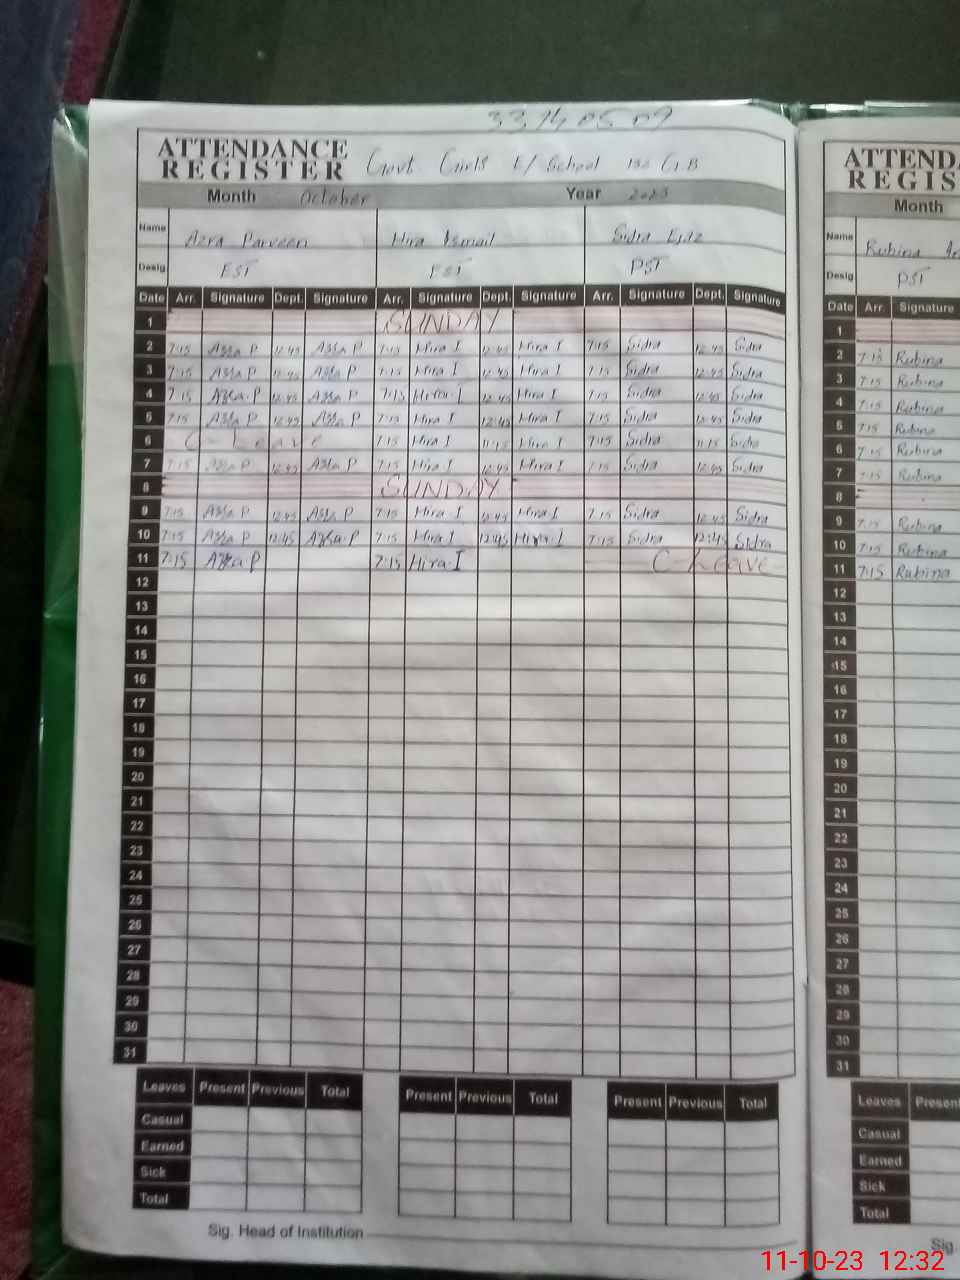 33140509
ATTENDANCE REGISTER Govt. Girls E/School GB
Month October Year 2023
Name Azra Parveen Hira Ismail Sidra Ejaz
Desig EST EST PST
Date Arr. Signature Dept. Signature Arr. Signature Dept. Signature Arr. Signature Dept. Signature
1 SUNDAY
2 7:15 Azra P 12:45 Azra P 7:15 Hira I 12:45 Hira I 7:15 Sidra 12:45 Sidra
3 7:15 Azra P 12:45 Azra P 7:15 Hira I 12:45 Hira I 7:15 Sidra 12:45 Sidra
4 7:15 Azra P 12:45 Azra P 7:15 Hira I 12:45 Hira I 7:15 Sidra 12:45 Sidra
5 7:15 Azra P 12:45 Azra P 7:15 Hira I 12:45 Hira I 7:15 Sidra 12:45 Sidra
6 C-Leave 7:15 Hira I 11:15 Hira I 7:15 Sidra 11:15 Sidra
7 7:15 Azra P 12:45 Azra P 7:15 Hira I 12:45 Hira I 7:15 Sidra 12:45 Sidra
8 SUNDAY
9 7:15 Azra P 12:45 Azra P 7:15 Hira I 12:45 Hira I 7:15 Sidra 12:45 Sidra
10 7:15 Azra P 12:45 Azra P 7:15 Hira I 12:45 Hira I 7:15 Sidra 12:45 Sidra
11 7:15 Azra P 7:15 Hira I C-Leave
12
13
14
15
16
17
18
19
20
21
22
23
24
25
26
27
28
29
30
31
Leaves Present Previous Total Present Previous Total Present Previous Total
Casual
Earned
Sick
Total
Sig. Head of Institution
ATTEND
REGIS
Month
Name Rubina
Desig PST
Date Arr. Signature
1
2 7:15 Rubina
3 7:15 Rubina
4 7:15 Rubina
5 7:15 Rubina
6 7:15 Rubina
7 7:15 Rubina
8
9 7:15 Rubina
10 7:15 Rubina
11 7:15 Rubina
12
13
14
15
16
17
18
19
20
21
22
23
24
25
26
27
28
29
30
31
Leaves Present
Casual
Earned
Sick
Total
Sig.
11-10-23 12:32